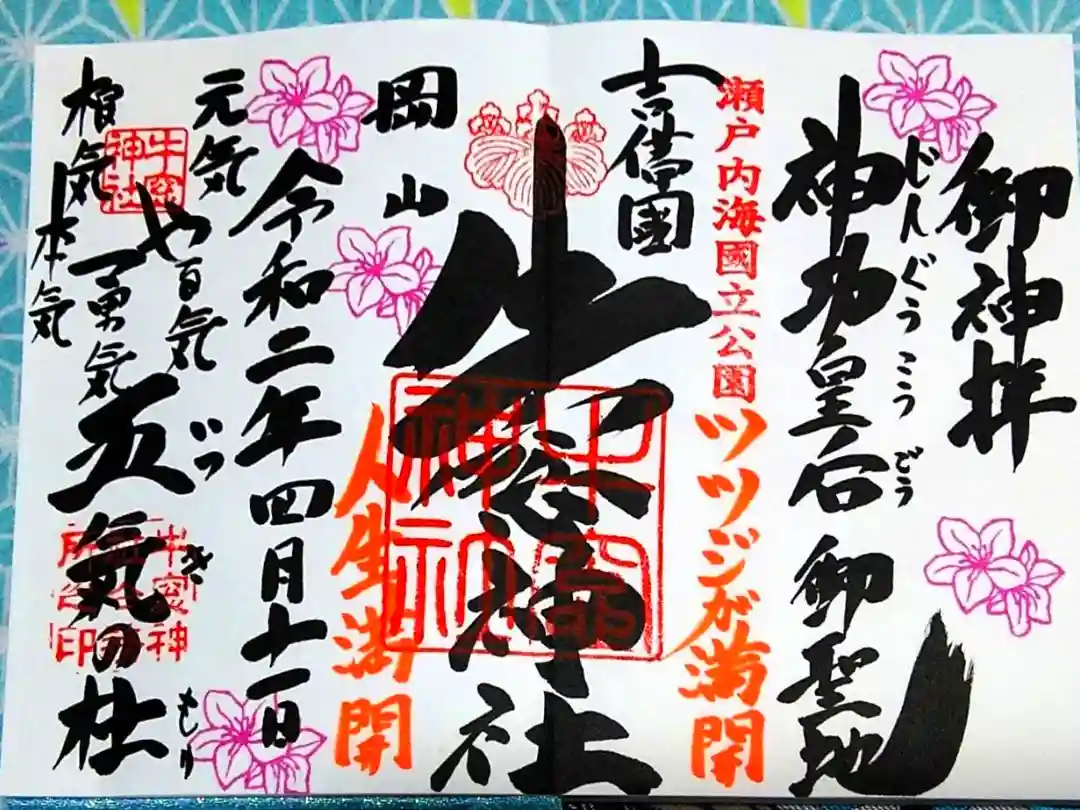 御神拝
じんぐうこうごう
神功皇后 御聖地
瀬戸内海國立公園
ツツジが満開
吉備國
牛窓神社
牛窓神社
岡山
人生満開
令和二年四月十一日
元気
や る気
勇気
根気
本気
牛窓神社
いつ き
五気の杜
もり
牛窓神
所
印